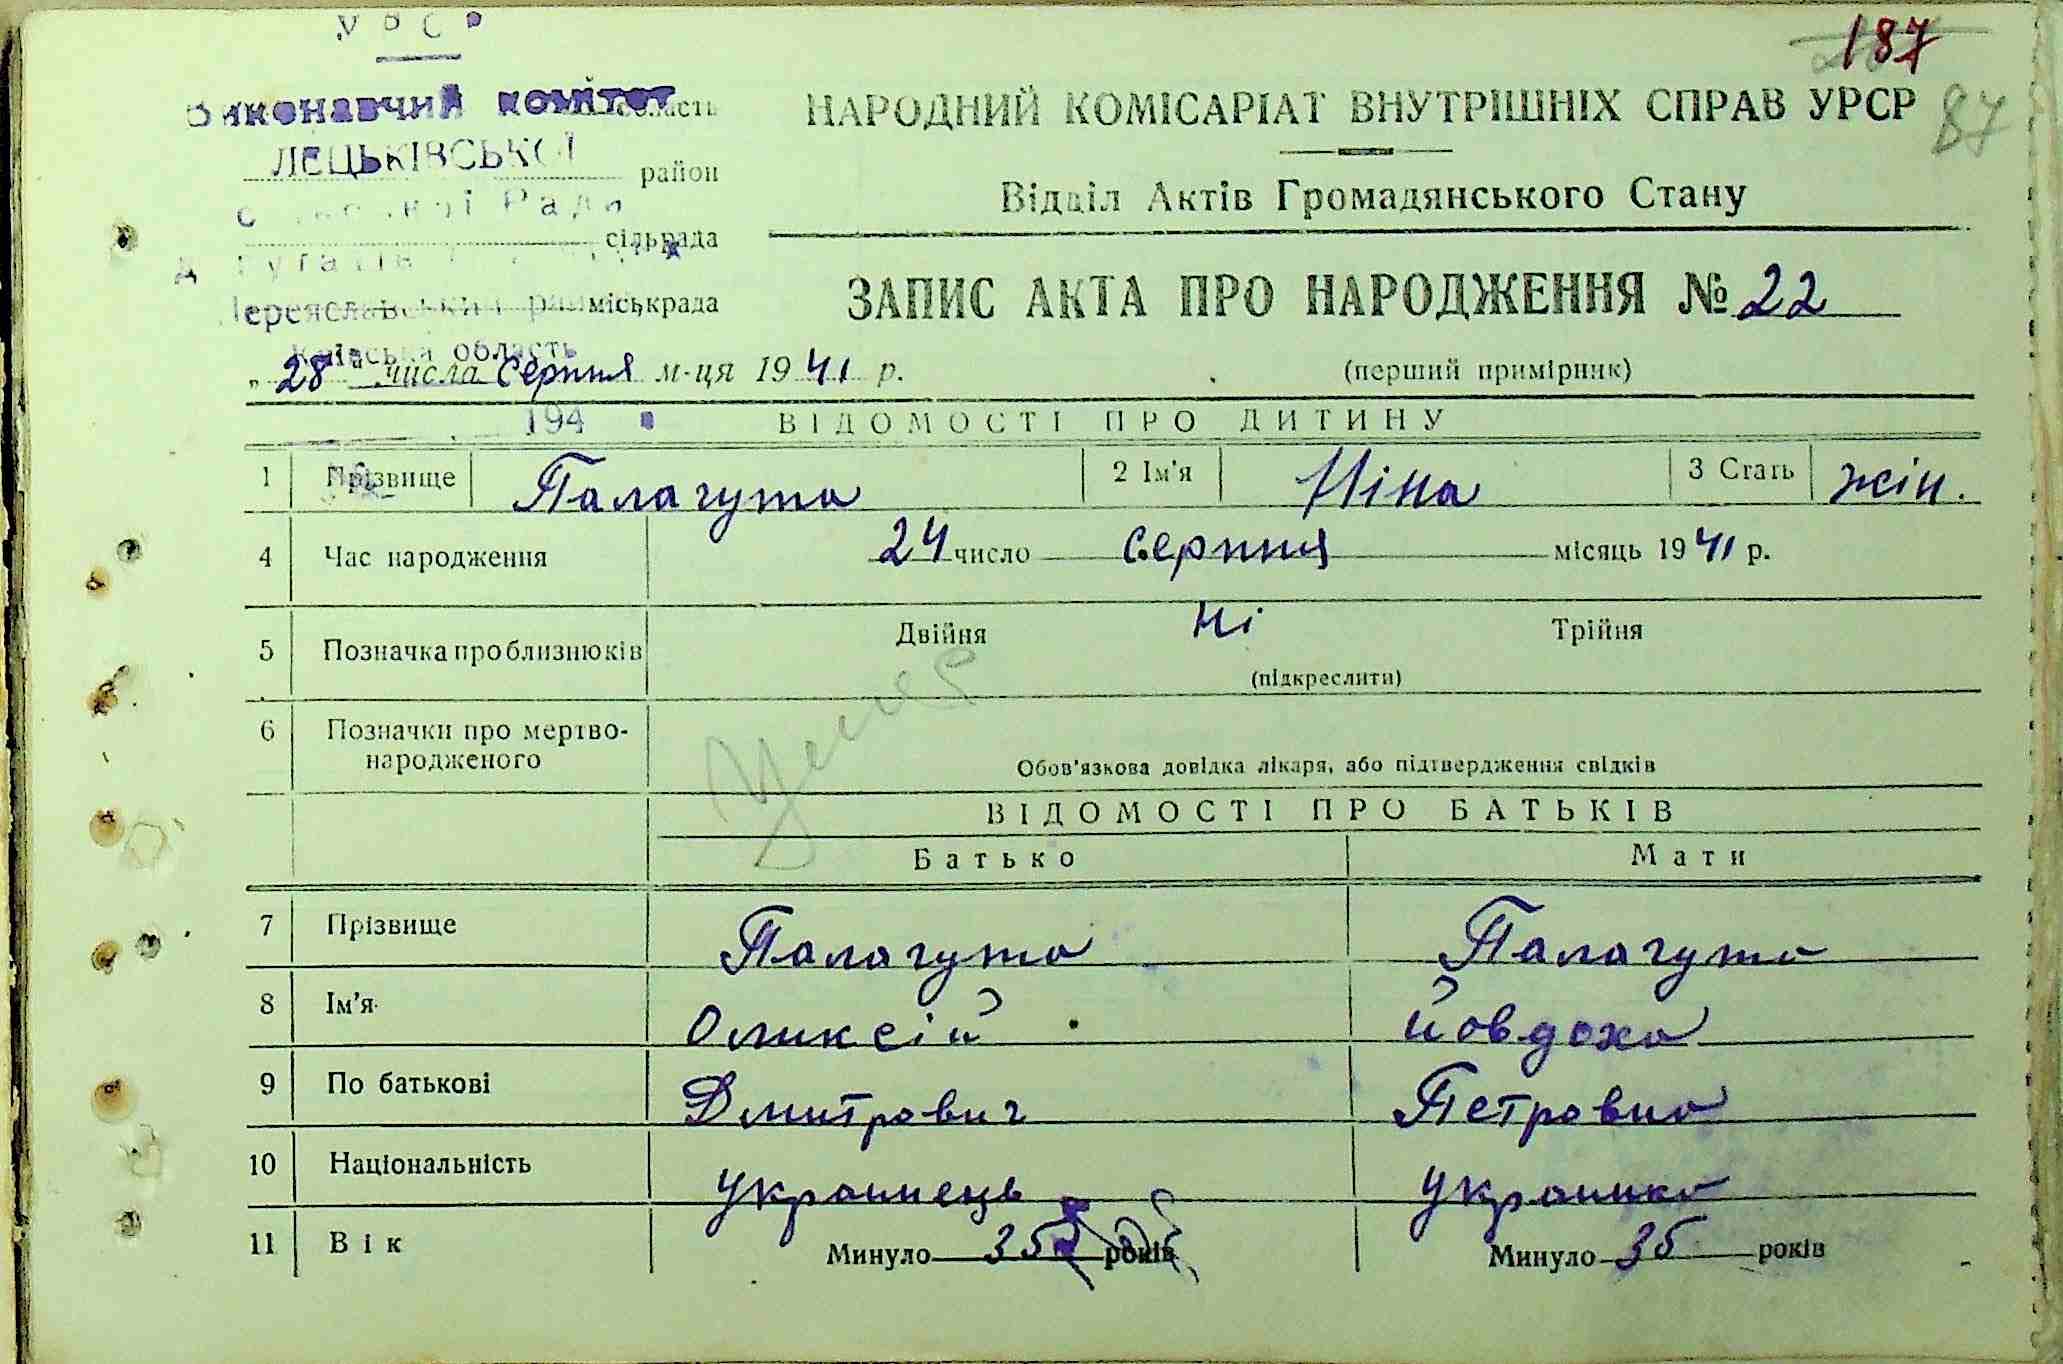 УРСР
187
Виконавчий комітет область
НАРОДНИЙ КОМІСАРІАТ ВНУТРІШНІХ СПРАВ УРСР
87
ЛЕЦЬКІВСЬКОЇ район
Відділ Актів Громадянського Стану
Ради
сільрада
Переяславський міськрада
ЗАПИС АКТА ПРО НАРОДЖЕННЯ № 22
Київська область
„28“ числа серпня м-ця 1941 р.
(перший примірник)
194
ВІДОМОСТІ ПРО ДИТИНУ
1 Прізвище Палагута 2 Ім'я Ніна 3 Стать жін.
4 Час народження 24 число серпня місяць 1941 р.
5 Позначка про близнюків Двійня ні Трійня
(підкреслити)
6 Позначки про мертво-
народженого
Обов'язкова довідка лікаря, або підтвердження свідків
ВІДОМОСТІ ПРО БАТЬКІВ
Батько Мати
7 Прізвище Палагута Палагута
8 Ім'я Оликсій Йовдоха
9 По батькові Дмитрович Петровна
10 Національність українець українка
11 Вік Минуло 35 років Минуло 35 років